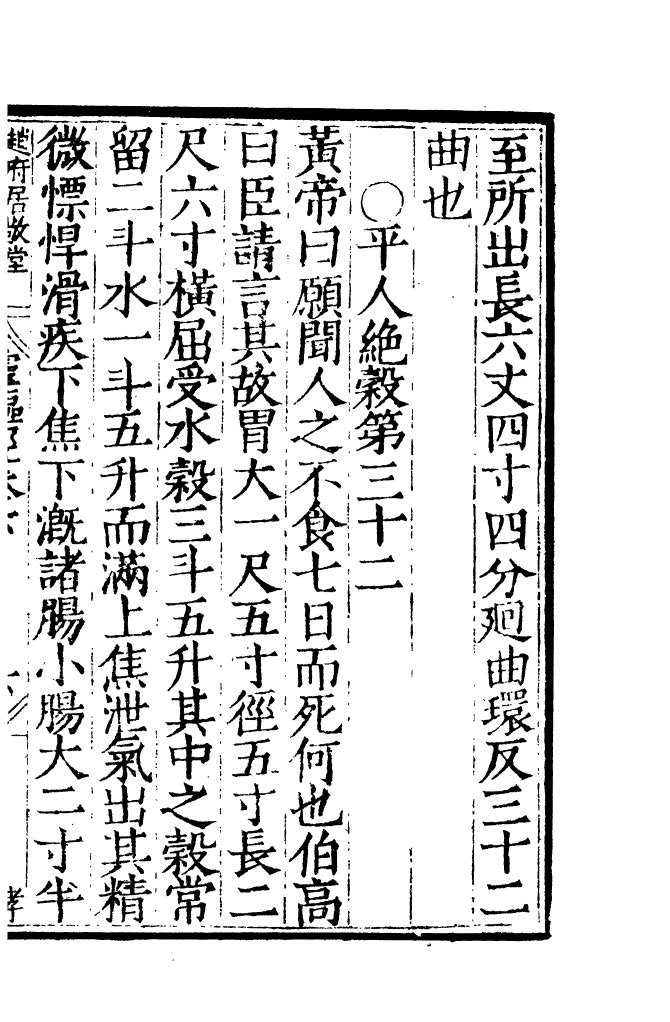 至所出長六丈四寸四分廻曲環反三十二
曲也
○平人絶穀第三十二
黃帝曰願聞人之不食七日而死何也伯高
曰臣請言其故胃大一尺五寸徑五寸長二
尺六寸橫屈受水穀三斗五升其中之穀常
留二斗水一斗五升而滿上焦泄氣出其精
微慓悍滑疾下焦下漑諸腸小腸大二寸半
趙府居敬堂